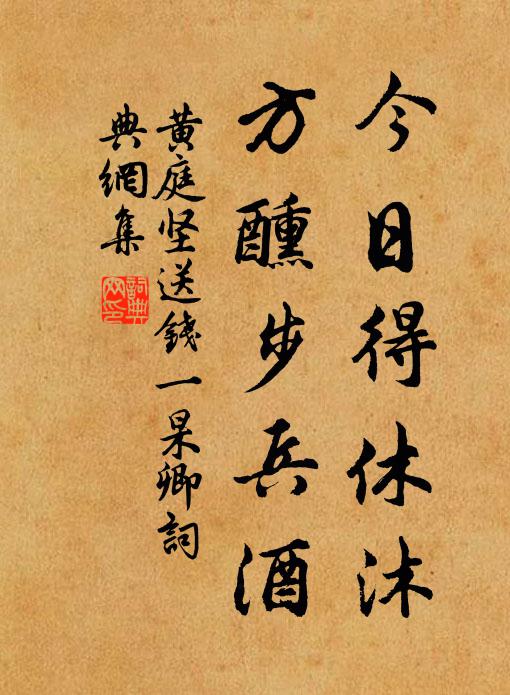 今日得休沐
方醺步兵酒
黄庭坚送錢一杲卿詞
典網集
詞典網印